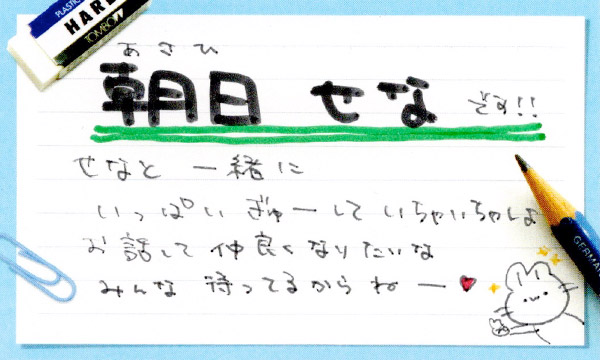 PLASTIC
HARD
TOMBOW
あさひ
朝日 せな です!!
せなと 一緒に
いっぱい ぎゅーして いちゃいちゃしよ
お話して 仲良くなりたいな
みんな 待ってるからねー♥
GERMAN